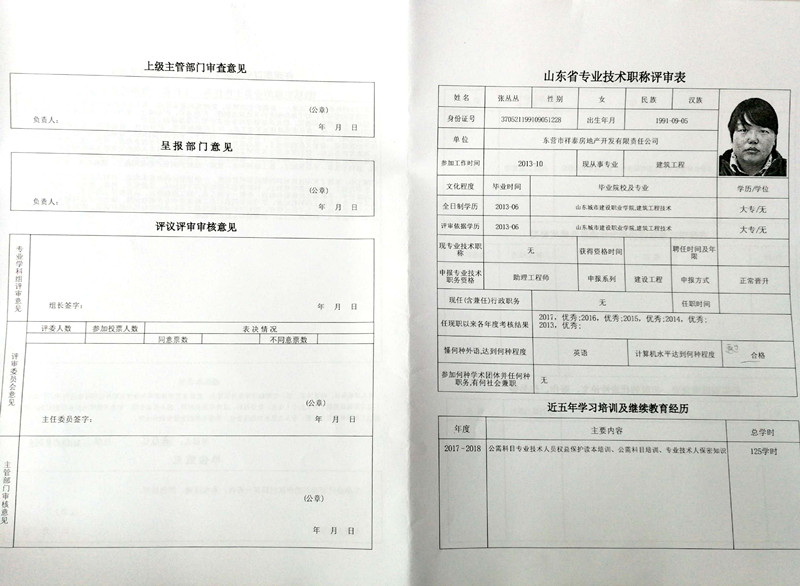 上级主管部门审查意见
(公章)
负责人:
年 月 日
呈报部门意见
(公章)
负责人:
年 月 日
评议评审审核意见
专业学科组评审意见
组长签字:
年 月 日
评审委员会意见
评委人数 参加投票人数 表决情况
同意票数 不同意票数
(公章)
主任委员签字:
年 月 日
主管部门审核意见
(公章)
年 月 日
山东省专业技术职称评审表
姓名 张丛丛 性别 女 民族 汉族
身份证号 370521199109051228 出生年月 1991-09-05
单位 东营市祥泰房地产开发有限责任公司
参加工作时间 2013-10 现从事专业 建筑工程
文化程度 毕业时间 毕业院校及专业 学历/学位
全日制学历 2013-06 山东城市建设职业学院,建筑工程技术 大专/无
评审依据学历 2013-06 山东城市建设职业学院,建筑工程技术 大专/无
现专业技术职称 无 获得资格时间 聘任时间及年限
申报专业技术职务资格 助理工程师 申报系列 建设工程 申报方式 正常晋升
现任(含兼任)行政职务 无 任职时间
任现职以来各年度考核结果 2017, 优秀;2016, 优秀;2015, 优秀;2014, 优秀;
2013, 优秀;
懂何种外语,达到何种程度 英语 计算机水平达到何种程度 合格
参加何种学术团体并任何种职务,有何社会兼职 无
近五年学习培训及继续教育经历
年度 主要内容 总学时
2017-2018 公需科目专业技术人员权益保护读本培训、公需科目培训、专业技术人保密知识 125学时